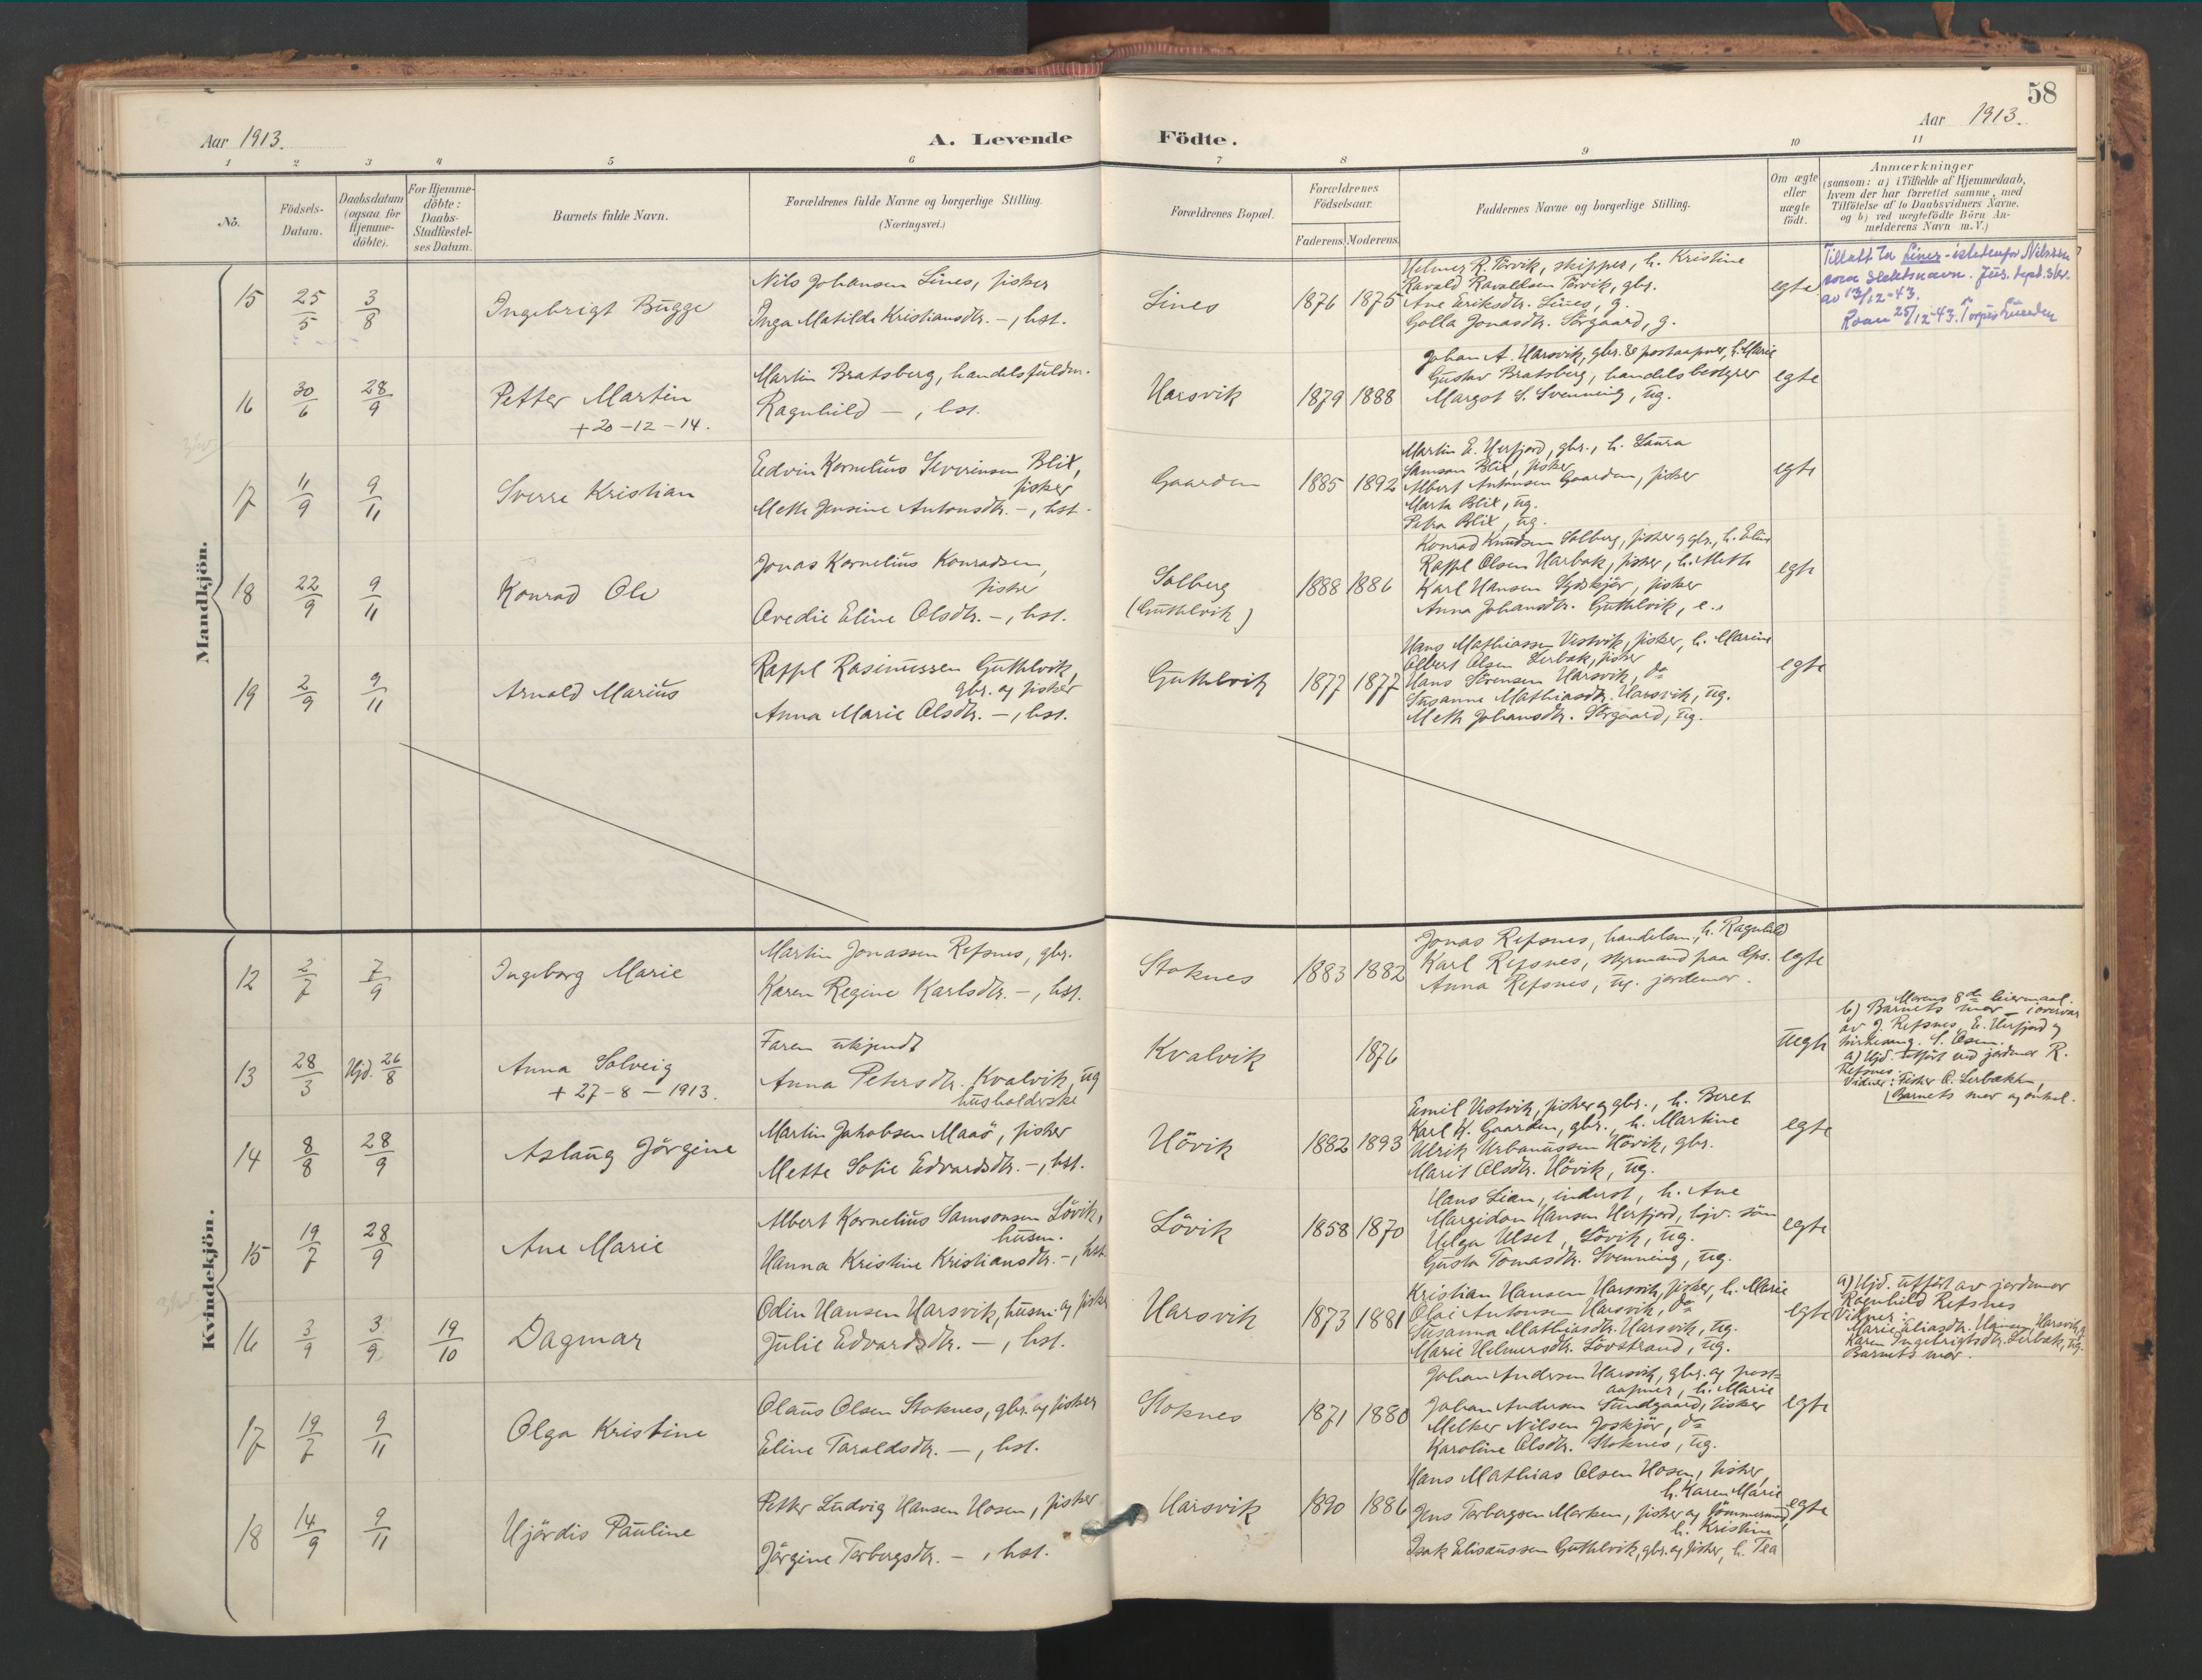 58
Aar 1913.
A. Levende Födte.
Aar 1913.
1 2 3 4 5 6 7 8 9 10 11
No.
Födsels-Datum.
Daabsdatum (ogsaa for Hjemme-döbte).
For Hjemme-döbte: Daabs-Stadfæstel-ses Datum.
Barnets fulde Navn.
Forældrenes fulde Navne og borgerlige Stilling.
(Næringsvei.)
Forældrenes Bopæl.
Forældrenes Födselsaar.
Faderens. Moderens.
Faddernes Navne og borgerlige Stilling.
Om ægte eller uægte födt.
Anmærkninger
(saasom: a) i Tilfælde af Hjemmedaab, hvem der har forrettet samme, med Tilföielse af to Daabsvidners Navne, og b) ved uægtefödte Börn An-melderens Navn m.V.)
Mandkjön.
15 25/5 3/8 Ingebrigt Bugge
Nils Johansen Lines, fisker
Inga Matilde Kristiansdtr. –, hst.
Lines 1876 1875
Helmer R. Törvik, skipper, h. Kristine
Ravald Ravaldsen Törvik, gbr.
Ane Eriksdtr. Lines, g.
Golla Jonasdtr. Sörgaard, g.
egte
Tillatt ta Lines istedenfor Nilssen
som slektsnavn. Jus. dept. skr.
av 13/12-43.
Roan 25/12-43.
16 30/6 28/9 Petter Martin
+ 20-12-14.
Martin Bratsberg, handelsfuldm.
Ragnhild –, hst.
Harsvik 1879 1888
Johan A. Harsvik, gbr. & postaapner, h. Marie
Gustav Bratsberg, handelsbestyrer
Margot S. Svenning, ug.
egte
17 11/9 9/11 Sverre Kristian
Edvin Kornelius Severinsen Blix,
fisker
Meth Jensine Antonsdtr. –, hst.
Gaarden 1885 1892
Martin E. Herfjord, gbr., h. Laura
Samson Blix, fisker
Albert Antonsen Gaarden, fisker
Marta Blix, ug.
Petra Blix, ug.
egte
18 22/9 9/11 Konrad Ole
Jonas Kornelius Konradsen,
fisker
Ovedie Eline Olsdtr. –, hst.
Solberg
(Guthelvik)
1888 1886
Konrad Knudsen Solberg, fisker og gbr., h. Eline
Rappl Olsen Harbak, fisker, h. Meth
Karl Hansen Sydskjör, fisker
Anna Johansdtr. Guthelvik, e.
egte
19 2/9 9/11 Arnold Marius
Rappl Rasmussen Guthelvik,
gbr. og fisker
Anna Marie Olsdtr. –, hst.
Guthelvik 1877 1877
Hans Mathiassen Vestvik, fisker, h. Marine
Albert Olsen Lerbak, fisker
Hans Sörensen Harsvik, do
Susanne Mathiasdtr. Harsvik, ug.
Meth Johansdtr. Sörgaard, ug.
egte
Kvindekjön.
12 2/7 7/9 Ingeborg Marie
Martin Jonassen Refsnes, gbr.
Karen Regine Karlsdtr. –, hst.
Stoknes 1883 1882
Jonas Refsnes, handelsm., h. Ragnhild
Karl Refsnes, styrmand paa dps.
Anna Refsnes, ug. jordemor.
egte
13 28/3 Hjd. 26/8 Anna Solveig
+ 27-8-1913.
Faren ukjendt
Anna Petersdtr. Kvalvik, ug
husholderske
Kvalvik 1876
uegte
Morens 8de leiermaal.
b) Barnets mor i overvær
av J. Refsnes, E. Herfjord og
kirkesang. S. Osen.
a) Hjd. utfört ved jordmor R.
Refsnes.
Vidner: Fisker O. Lerbækken,
Barnets mor og onkel.
14 8/8 28/9 Aslaug Jörgine
Martin Jakobsen Maaö, fisker
Mette Sofie Edvardsdtr. –, hst.
Hövik 1882 1893
Emil Vestvik, fisker og gbr., h. Beret
Karl K. Gaarden, gbr., h. Martine
Ulrik Urbanussen Hövik, gbr.
Marit Olsdtr. Hövik, ug.
egte
15 19/7 28/9 Ane Marie
Albert Kornelius Samsonsen Lövik,
husm.
Hanna Kristine Kristiansdtr. –, hst.
Lövik 1858 1870
Hans Lian, inderst, h. Ane
Margidon Hansen Herfjord, hjv. sön
Helga Ulset, Lövik, ug.
Gusta Tomasdtr. Svenning, ug.
egte
16 3/9 3/9 19/10 Dagmar
Odin Hansen Harsvik, husm. og fisker
Julie Edvardsdtr. –, hst.
Harsvik 1873 1881
Kristian Hansen Harsvik, fisker, h. Marie
Olai Antonsen Harsvik, do
Susanna Mathiasdtr. Harsvik, ug.
Marie Helmersdtr. Lövstrand, ug.
egte
a) Hjd. utfört av jordemor
Ragnhild Refsnes
Vidner:
Marie Eliasdtr. Harsvik,
Karen Ingebrigtsdtr. Lerbak, ug.
Barnets mor.
17 19/7 9/11 Olga Kristine
Olaus Olsen Stoknes, gbr. og fisker
Eline Taraldsdtr. –, hst.
Stoknes 1871 1880
Johan Andersen Harsvik, gbr. og post-
aapner, h. Marie
Johan Andersen Sundgaard, fisker
Melker Nilsen Joskjör, do
Karoline Olsdtr. Stoknes, ug.
egte
18 14/9 9/11 Hjördis Pauline
Petter Ludvig Hansen Hosen, fisker
Jörgine Torbergsdtr. –, hst.
Harsvik 1890 1886
Hans Mathias Olsen Hosen, fisker,
h. Karen Marie
Jens Torbergsen Marken, fisker og tömmermand,
h. Kristine
Isak Elisæussen Guthelvik, gbr. og fisker, h. Tea
egte